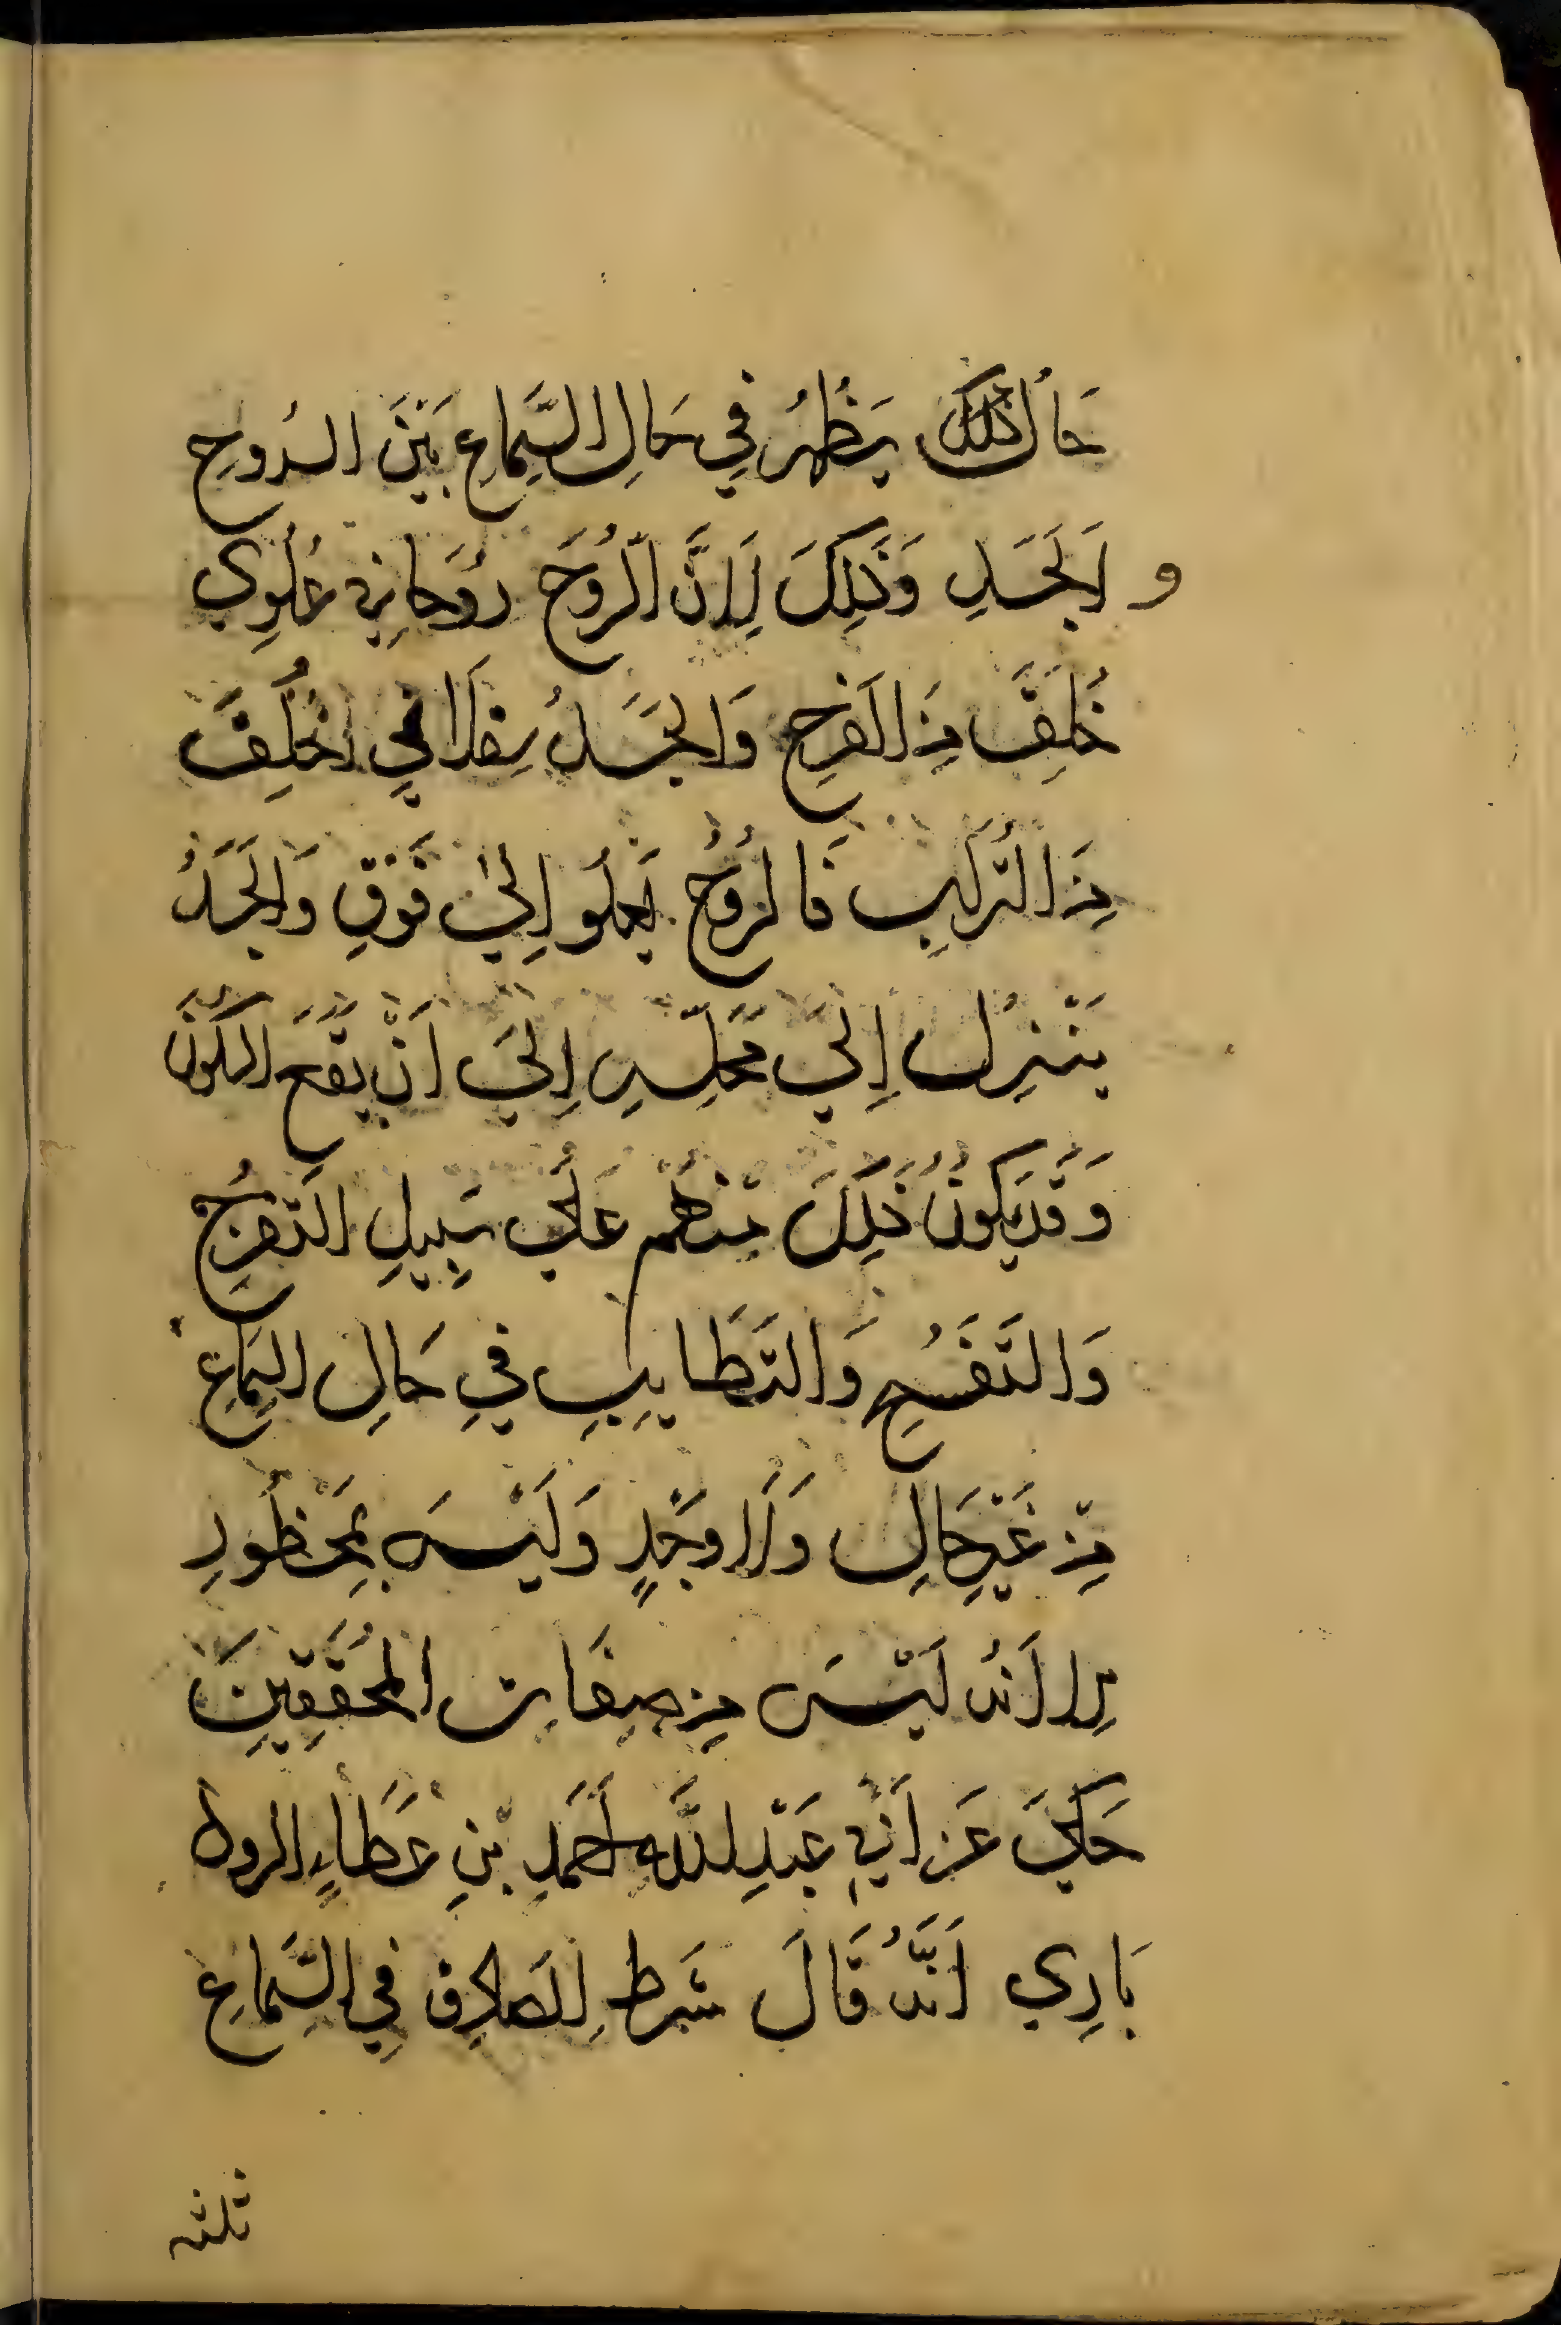 حَالُ ذلك يَظْهَرُ في حَالِ السَّمَاعِ بَيْنَ الرُوحِ
و اَلجَسَدِ وَذَلِكَ لِاَنَّ الرُّوُحَ رُوُحَانِي عُلوِي
خُلِقَ مِنَ الفَرَحِ وَالجَسَدُ سِفْلَانِي خُلِقَ
مِنَ التُّرَابِ فَالرُوُحُ يَعلُو اِلىٰ فَوقِ وَالجَسَدُ
يَنْزِلُ اِليَ مَحَلِّهِ اِليَ اَنْ يَقَعَ السُّكُونُ
وَقَد يَكُونُ ذَلِكَ مِنهُم عَلَى سَبِيلِ التَفرُجِ
وَالتَفَسُحِ وَالتَطَايِبِ فيِ حَالِ السَمَاعِ
مِنْ غَيْرِ حَالٍ وَلَا وَجْدٍ وَلَيْسَ بِمَحْظُورِ
اِلا اَنهُ لَيْسَ مِن صِفَاتِ المُحَقِقِينَ
حَكِيَ عَن اَبِي عَبْدِ اللَّهِ اَحمَدِ بْنِ عَطَاءٍ الروذ
بَارِي اَنَّهُ قَالَ شَرط الصَادِقِ فِي السَّمَاعِ
ثلثه